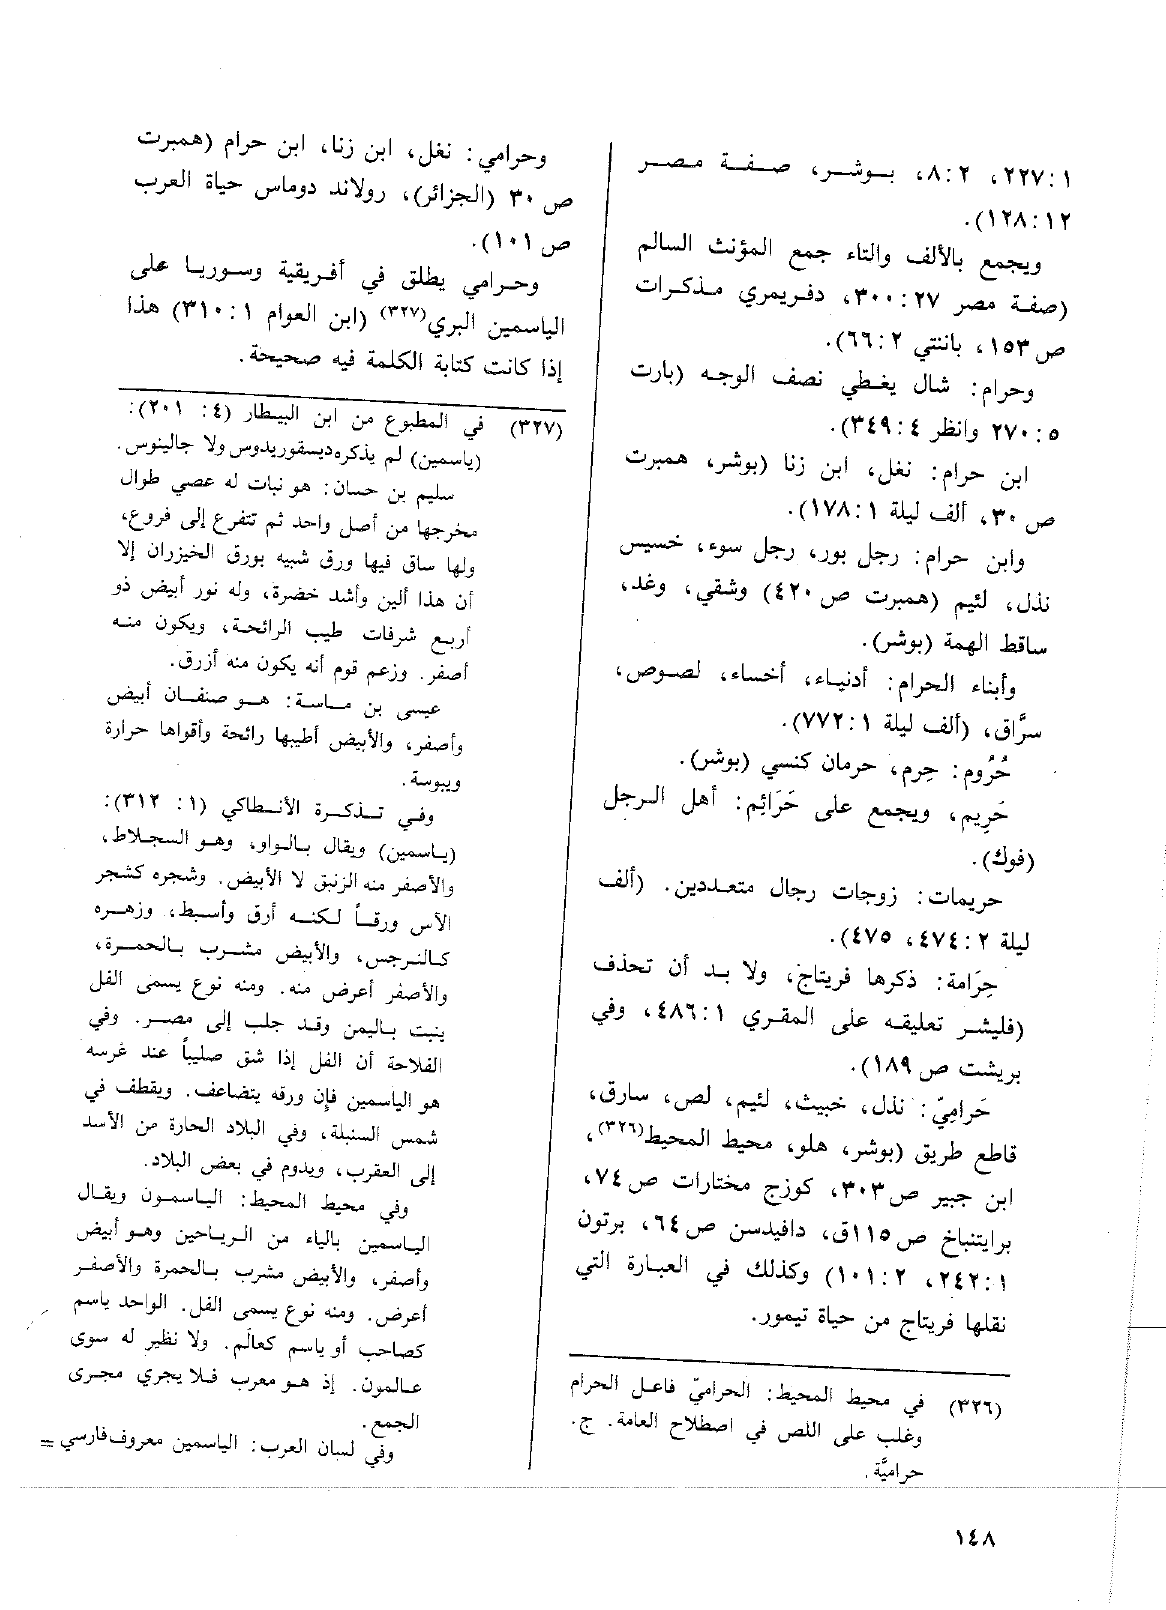 ١: ٢٢٧، ٢: ٨، بوشر، صفة مصر
١٢: ١٢٨).
ويجمع بالألف والتاء جمع المؤنث السالم
(صفة مصر ٢٧: ٣٠٠، دفريمري مذكرات
ص١٥٣، باننتي ٢: ٦٦).
وحرام: شال يغطي نصف الوجه (بارت
٥: ٢٧٠ وانظر ٤: ٣٤٩).
ابن حرام: نغل، ابن زنا (بوشر، همبرت
ص٣٠، ألف ليلة ١: ١٧٨).
وابن حرام: رجل بور، رجل سوء، خسيس
نذل، لئيم (همبرت ص٤٢٠) وشقي، وغد،
ساقط الهمة (بوشر).
وأبناء الحرام: أدنياء، أخساء، لصوص،
سرَّاق، (ألف ليلة ١: ٧٧٢).
حُرُوم: حِرم، حرمان كنسي (بوشر).
حَرِيم، ويجمع على حَرَائِم: أهل الرجل
(فوك).
حريمات: زوجات رجال متعددين. (ألف
ليلة ٢: ٤٧٤، ٤٧٥).
حِرَامة: ذكرها فريتاج، ولا بد أن تحذف
(فليشر تعليقه على المقري ١: ٤٨٦، وفي
بريشت ص١٨٩).
حَرامِيّ: نذل، خبيث، لئيم، لص، سارق،
قاطع طريق (بوشر، هلو، محيط المحيط(٣٢٦)،
ابن جبير ص٣٠٣، كوزج مختارات ص٧٤،
برايتنباخ ص١١٥ق، دافيدسن ص٦٤، برتون
١: ٢٤٢، ٢: ١٠١) وكذلك في العبارة التي
نقلها فريتاج من حياة تيمور.
(٣٢٦) في محيط المحيط: الحراميّ فاعل الحرام
وغلب على اللص في اصطلاح العامة. ج.
حراميَّة.
وحرامي: نغل، ابن زنا، ابن حرام (همبرت
ص٣٠ (الجزائر)، رولاند دوماس حياة العرب
ص١٠١).
وحرامي يطلق في أفريقية وسوريا على
الياسمين البري(٣٢٧) (ابن العوام ١: ٣١٠) هذا
إذا كانت كتابة الكلمة فيه صحيحة.
(٣٢٧) في المطبوع من ابن البيطار (٤: ٢٠١):
(ياسمين) لم يذكره ديسقوريدوس ولا جالينوس.
سليم بن حسان: هو نبات له عصي طوال
مخرجها من أصل واحد ثم تتفرع إلى فروع،
ولها ساق فيها ورق شبيه بورق الخيزران إلا
أن هذا ألين وأشد خضرة، وله نور أبيض ذو
أربع شرفات طيب الرائحة، ويكون منه
أصفر. وزعم قوم أنه يكون منه أزرق.
عيسى بن ماسة: هو صنفان أبيض
وأصفر، والأبيض أطيبها رائحة وأقواها حرارة
ويبوسة.
وفي تذكرة الأنطاكي (١: ٣١٢):
(ياسمين) ويقال بالواو، وهو السجلاط،
والأصفر منه الزنبق لا الأبيض. وشجره كشجر
الآس ورقاً لكنه أرق وأسبط، وزهره
كالنرجس، والأبيض مشرب بالحمرة،
والأصفر أعرض منه. ومنه نوع يسمى الفل
ينبت باليمن وقد جلب إلى مصر. وفي
الفلاحة أن الفل إذا شق صليباً عند غرسه
هو الياسمين فإن ورقه يتضاعف. ويقطف في
شمس السنبلة، وفي البلاد الحارة من الأسد
إلى العقرب، ويدوم في بعض البلاد.
وفي محيط المحيط: الياسمون ويقال
الياسمين بالياء من الرياحين وهو أبيض
وأصفر، والأبيض مشرب بالحمرة والأصفر
أعرض. ومنه نوع يسمى الفل. الواحد ياسم
كصاحب أو ياسم كعالَم. ولا نظير له سوى
عالمون. إذ هو معرب فلا يجري مجرى
الجمع.
وفي لسان العرب: الياسمين معروف فارسي =
١٤٨